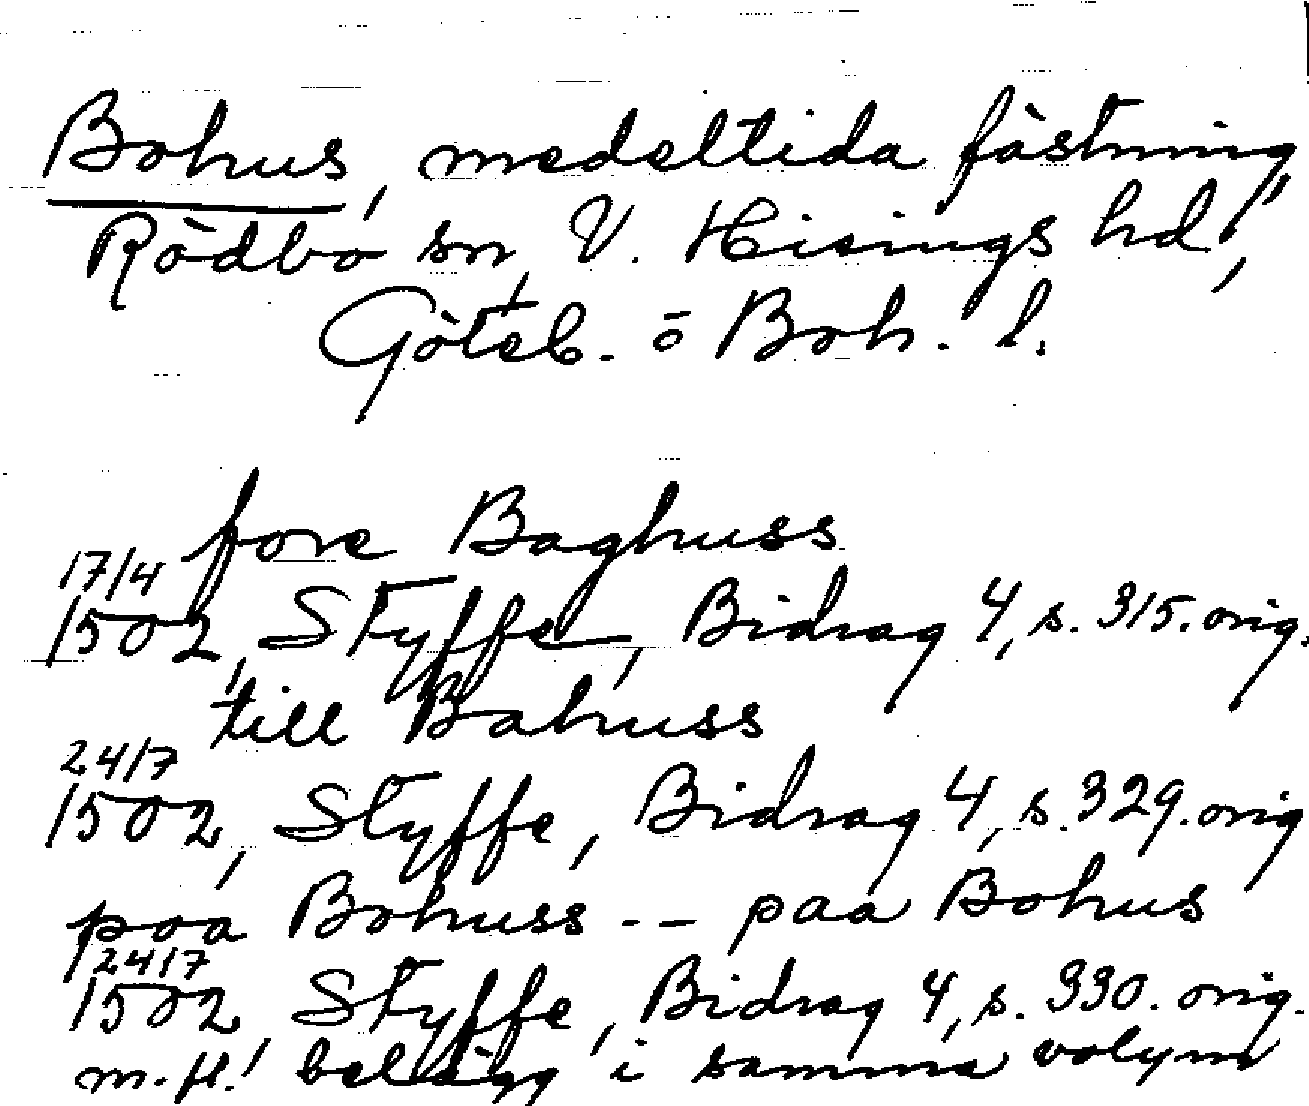 Bohus, medeltida fästning,
Rödbo sn, V. Hisings hd,
Göteb. o Boh. l.
fore Baghuss
17/4
1502, Styffe, Bidrag 4, s. 315. orig.
till Bahuss
24/7
1502, Styffe, Bidrag 4, s. 329. orig
paa Bohuss -- paa Bohus
24/7
1502, Styffe, Bidrag 4, s. 330. orig.
m. fl. belägg i samma volym